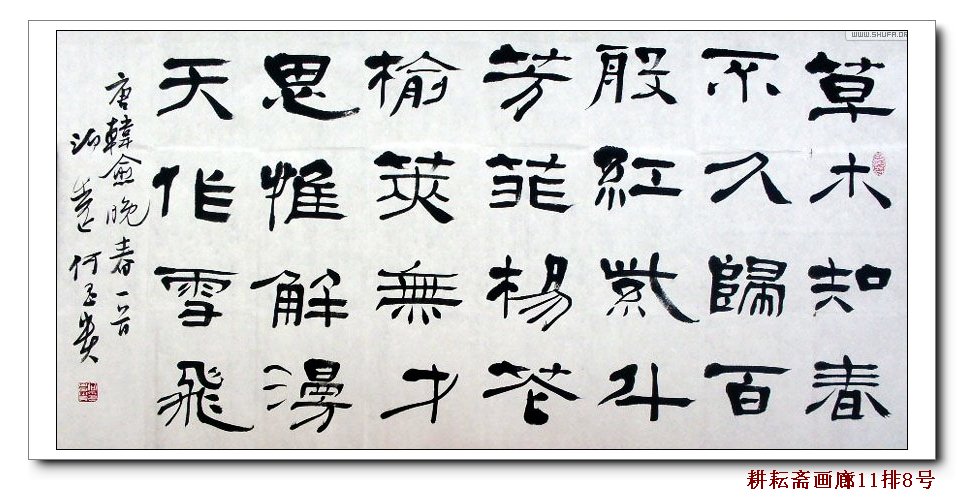 草木知春
不久歸百
般紅紫斗
芳菲楊花
榆莢無才
思惟解漫
天作雪飛
唐韓愈晚春一首
何玉
耕耘斋画廊11排8号